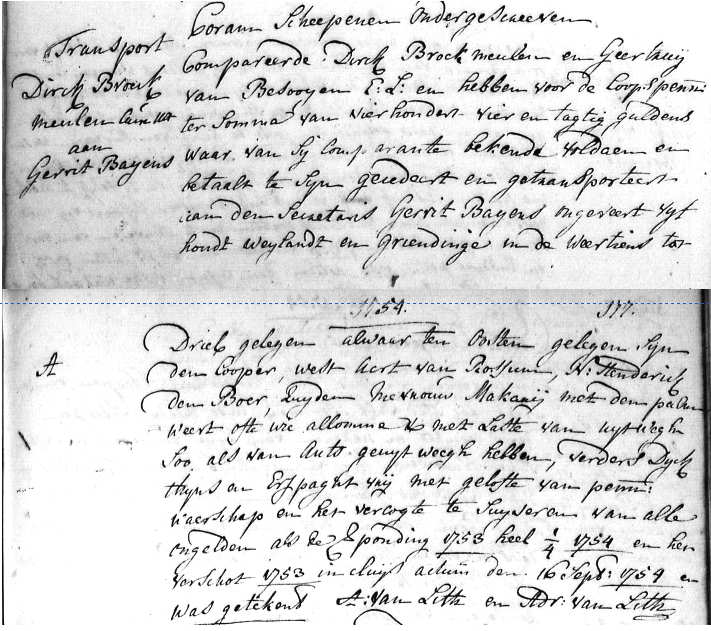 Coram Scheepenen ondergescreeven
Transport
Dirck Brouk
meulen
aan
Gerrit Bayens
Compareerde Dirck Brock meulen en Geerling
van Besooyen E: L: en hebben voor de Coopspenn:
ter Somma van vierhondert vier en tagtig guldens
waar van Sij Comparante bekende voldaen en
betaalt te Syn gecedeert en getransporteert
aan den Secretaris Gerrit Bayens ongeveert vyf
hondt weylandt en griendinge in de weertiens tot
1754. 177.
A
Driel gelegen alwaar ten Oosten gelegen Syn
den Cooper, west Aert van Rossum, N: Handerick
den Boer, Zuyden Mevrouw Makanij met den
weert ofte wie allomme & met Laste van uytweegh
Soo als van Auts. geuyt weegh hebben, verders Dyck
thyns en Erfpagt vrij met gelofte van penn:
waerschap en het vercogte te Suyveren van alle
ongelden als de Eponding 1753 heel ¼ 1754 en her
verschot 1753 incluijs actum den 16 Sept: 1754 en
was getekent A: van Lith en Adr: van Lith